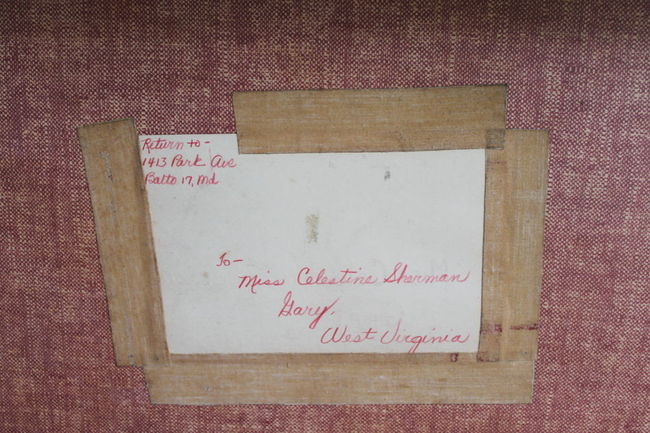 Return to-
1413 Park Ave
Balto 17, Md
To-
Miss Celestine Sherman
Gary,
West Virginia